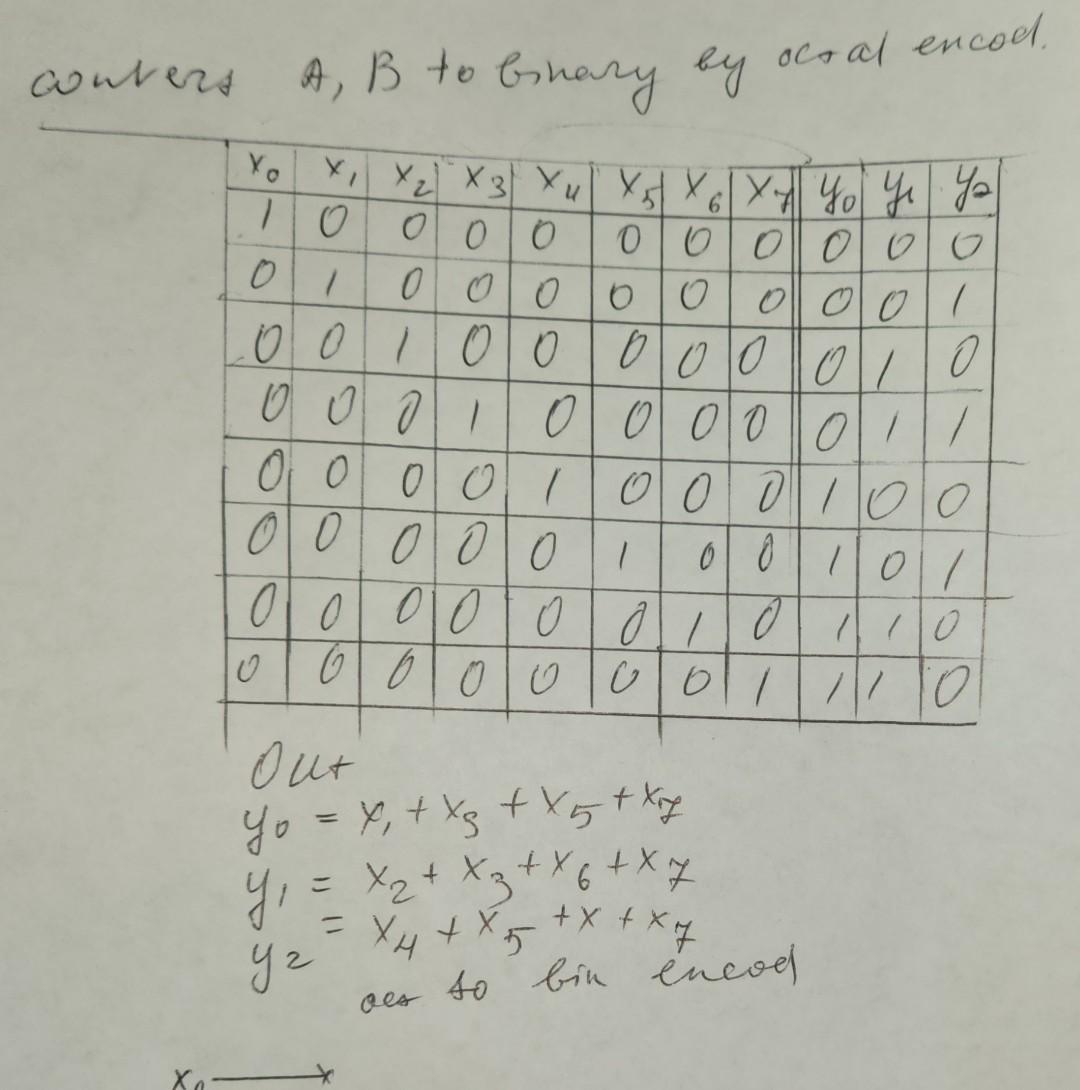 convers A, B to binary by octal encod.
x0 x1 x2 x3 x4 x5 x6 x7 y0 y1 y2
1 0 0 0 0 0 0 0 0 0 0
0 1 0 0 0 0 0 0 0 0 1
0 0 1 0 0 0 0 0 0 1 0
0 0 0 1 0 0 0 0 0 1 1
0 0 0 0 1 0 0 0 1 0 0
0 0 0 0 0 1 0 0 1 0 1
0 0 0 0 0 0 1 0 1 1 0
0 0 0 0 0 0 0 1 1 1 0
Out
y0 = x1 + x3 + x5 + x7
y1 = x2 + x3 + x6 + x7
y2 = x4 + x5 + x + x7
oct to bin encod
x0